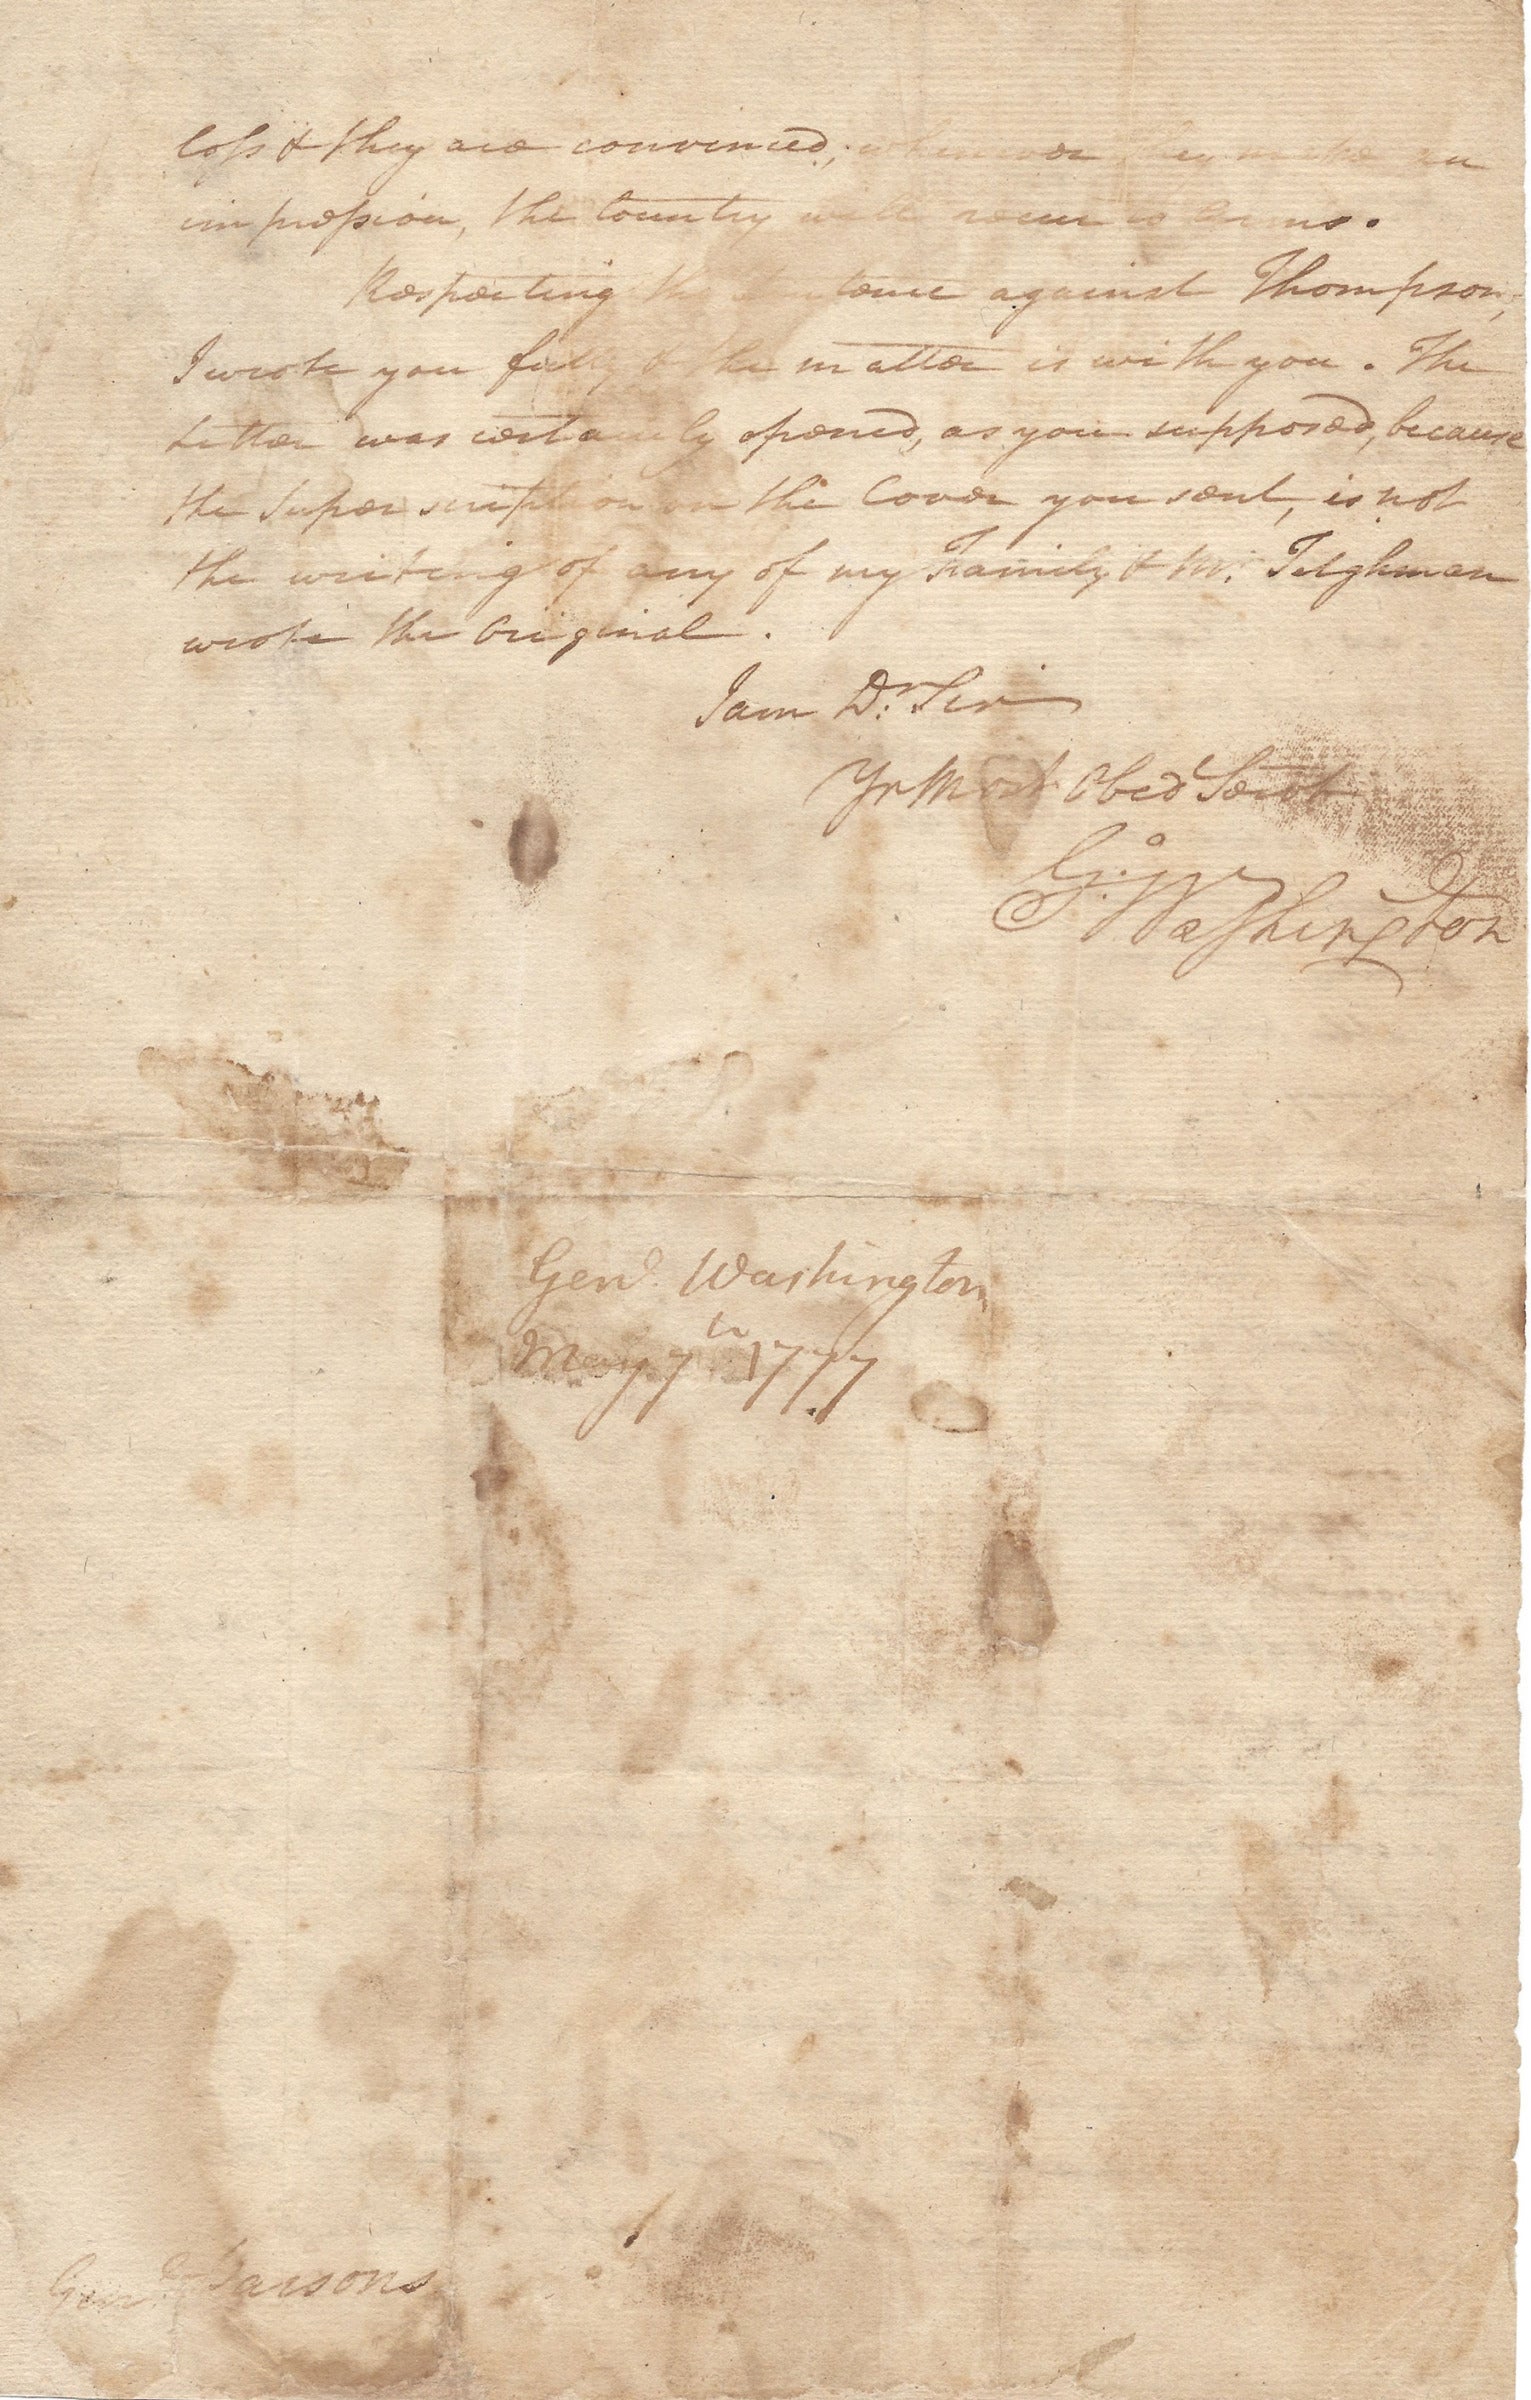 loss & they are convinced, whenever they make an
impression, the Country will recur to Arms.
Respecting the Sentence against Thompson,
I wrote you fully & the matter is with you. The
Letter was certainly opened, as you supposed, because
the Superscription on the Cover you sent, is not
the writing of any of my Family & Mr. Tilghman
wrote the Original.
I am Dr. Sir
Yr Most Obed Servt
Go: Washington
Genl. Washington
May 7th 1777
Genl. Parsons